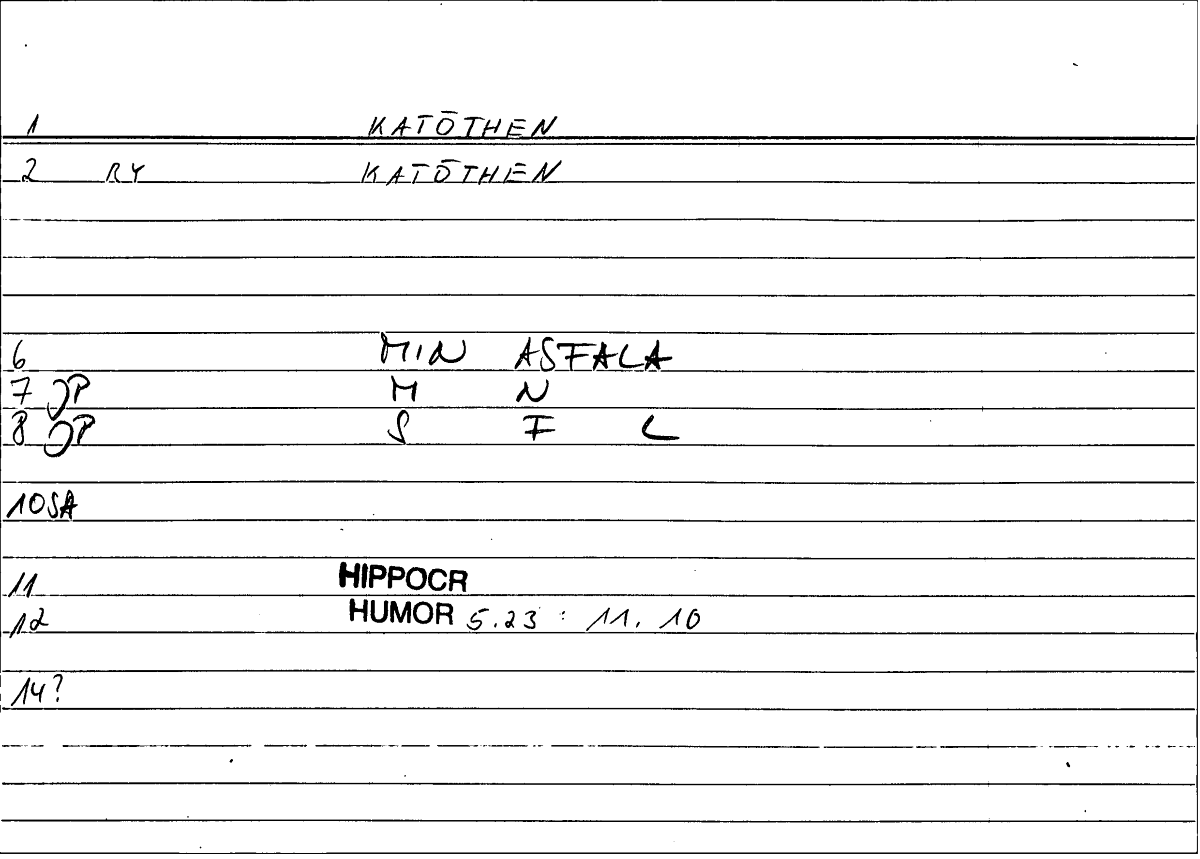 1 KATŌTHEN
2 RY KATŌTHEN
6 MIN ASFALA
7 JP M N
8 JP S F L
10 SA
11 HIPPOCR
12 HUMOR 5.23 : 11. 10
14?